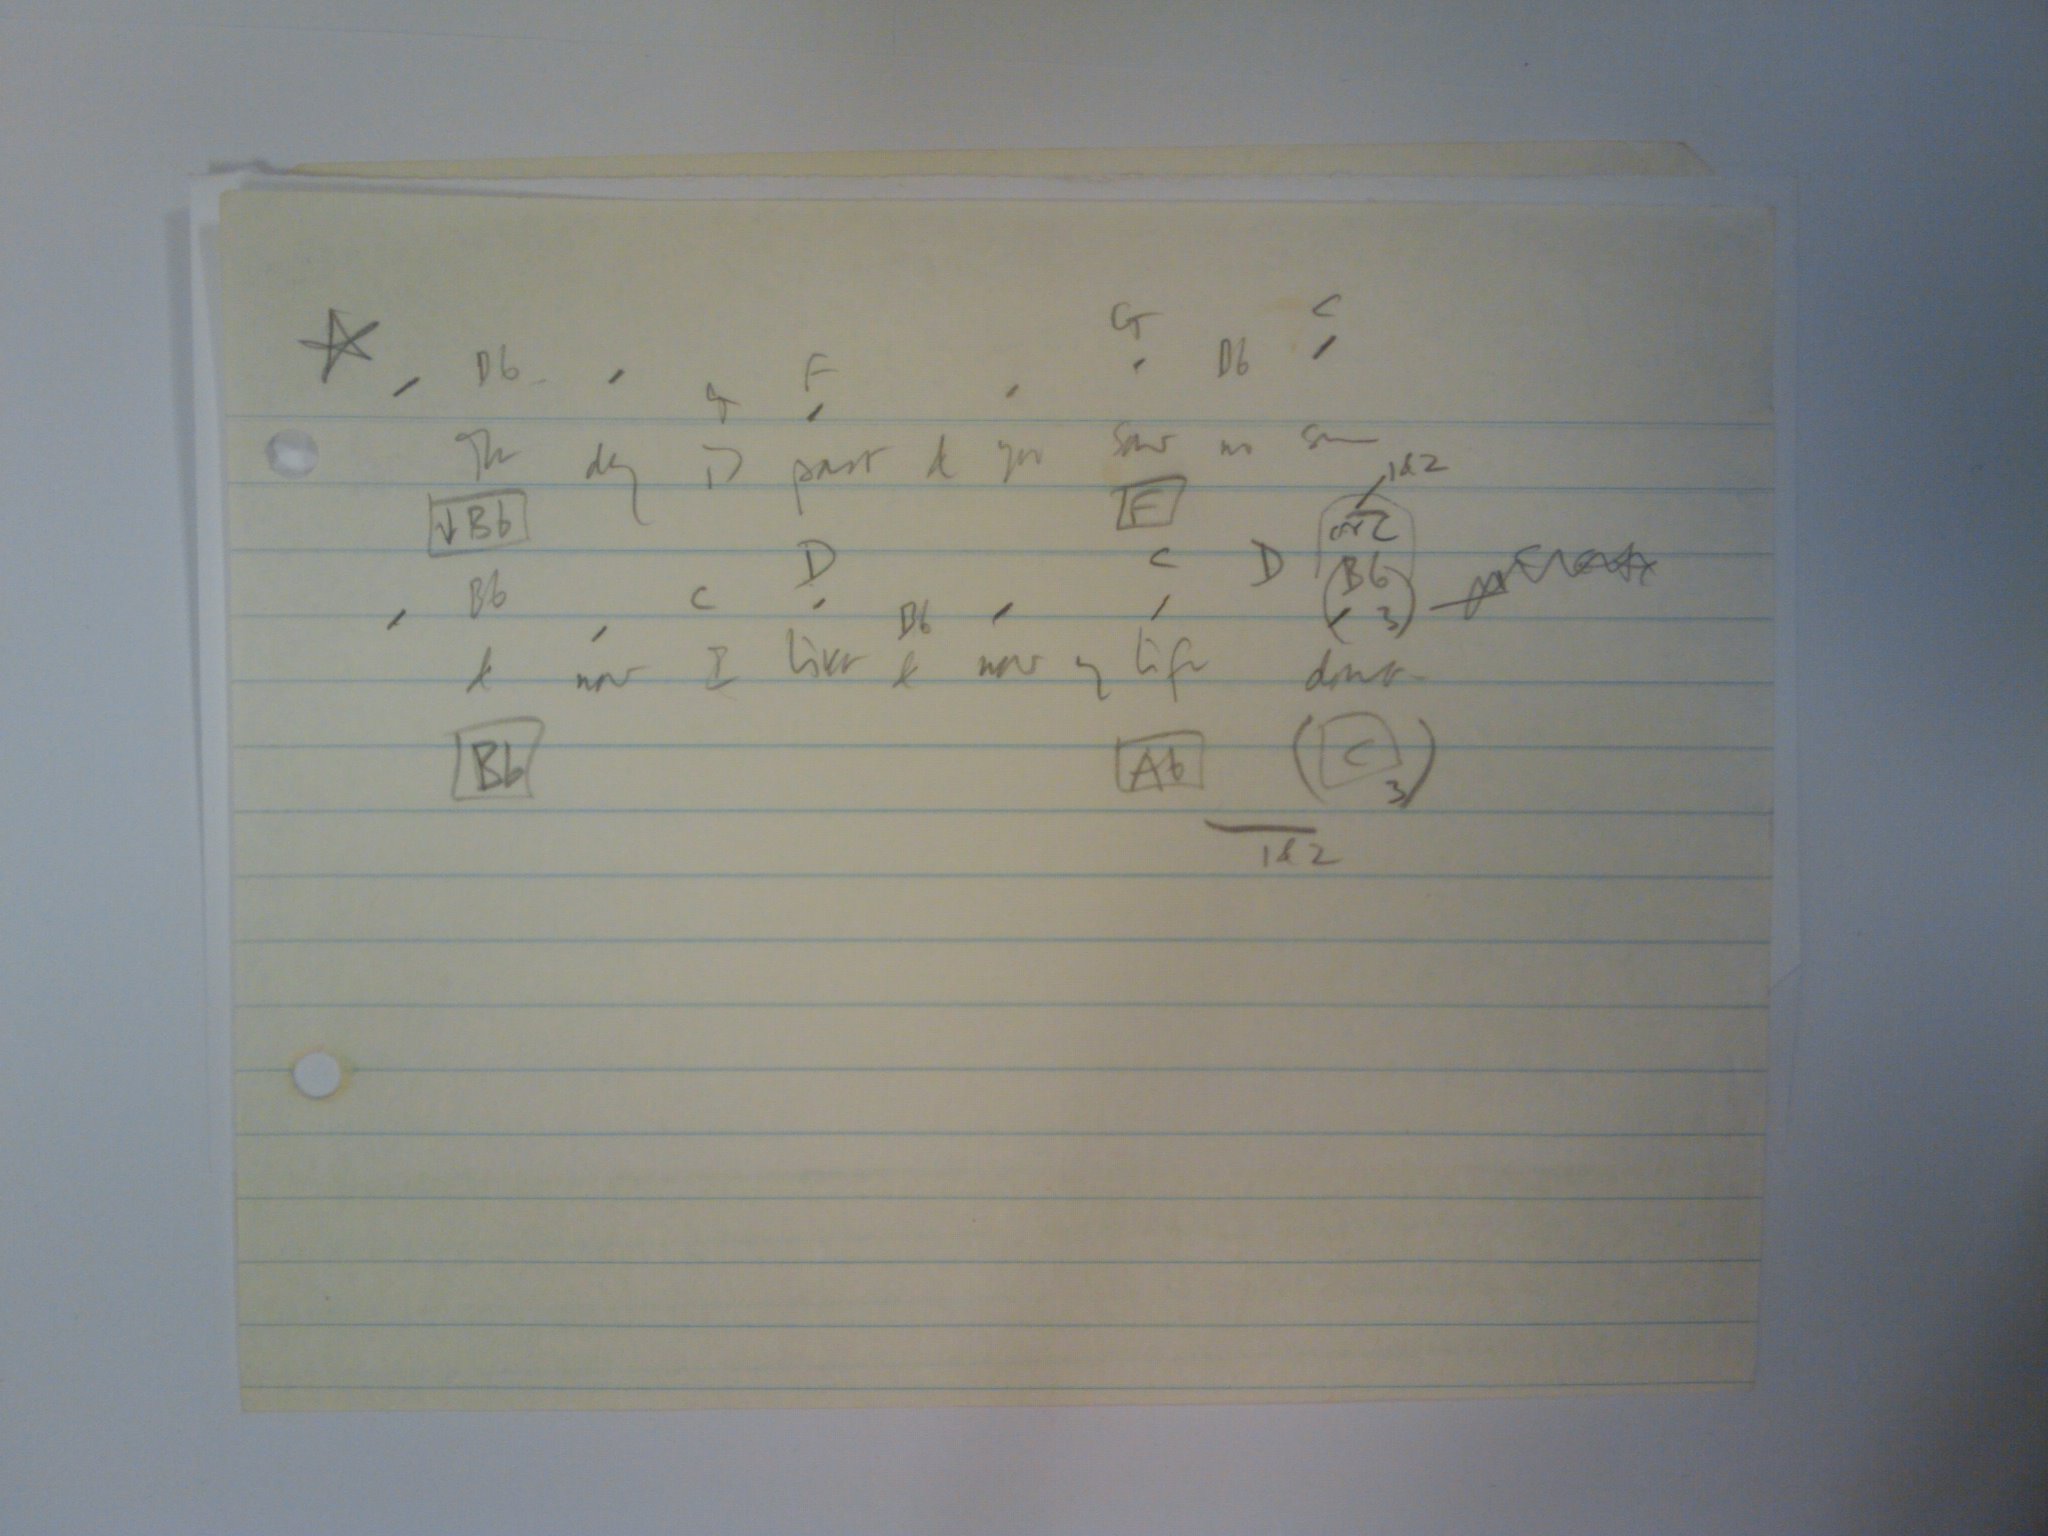 G C
Db F Db
G
The day is past & you saw no sun
1&2
↓Bb F
or 2
D C D Bb
Bb C Bb 3
& now I live & now my life done
Bb Ab (C 3)
1&2